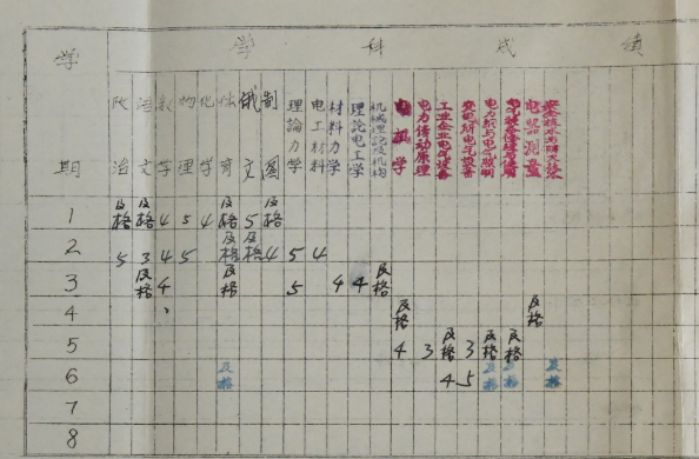 学期 学科成绩
政治 语文 数学 物理 化学 体育 俄文 制图 理論力学 电工材料 材料力学 理論电工学 机械理論及机构 电机学 电力传动原理 工业企业电气设备 变电所电气设备 电器测量
1 及格 及格 4 5 4 及格 5 及格
2 5 3 4 5 及格 及格 4 5 4
3 及格 4 及格 5 4 4 及格
4 及格 及格
5 4 3 及格 3 及格 及格
6 及格 4 5 及格 及格 及格
7
8